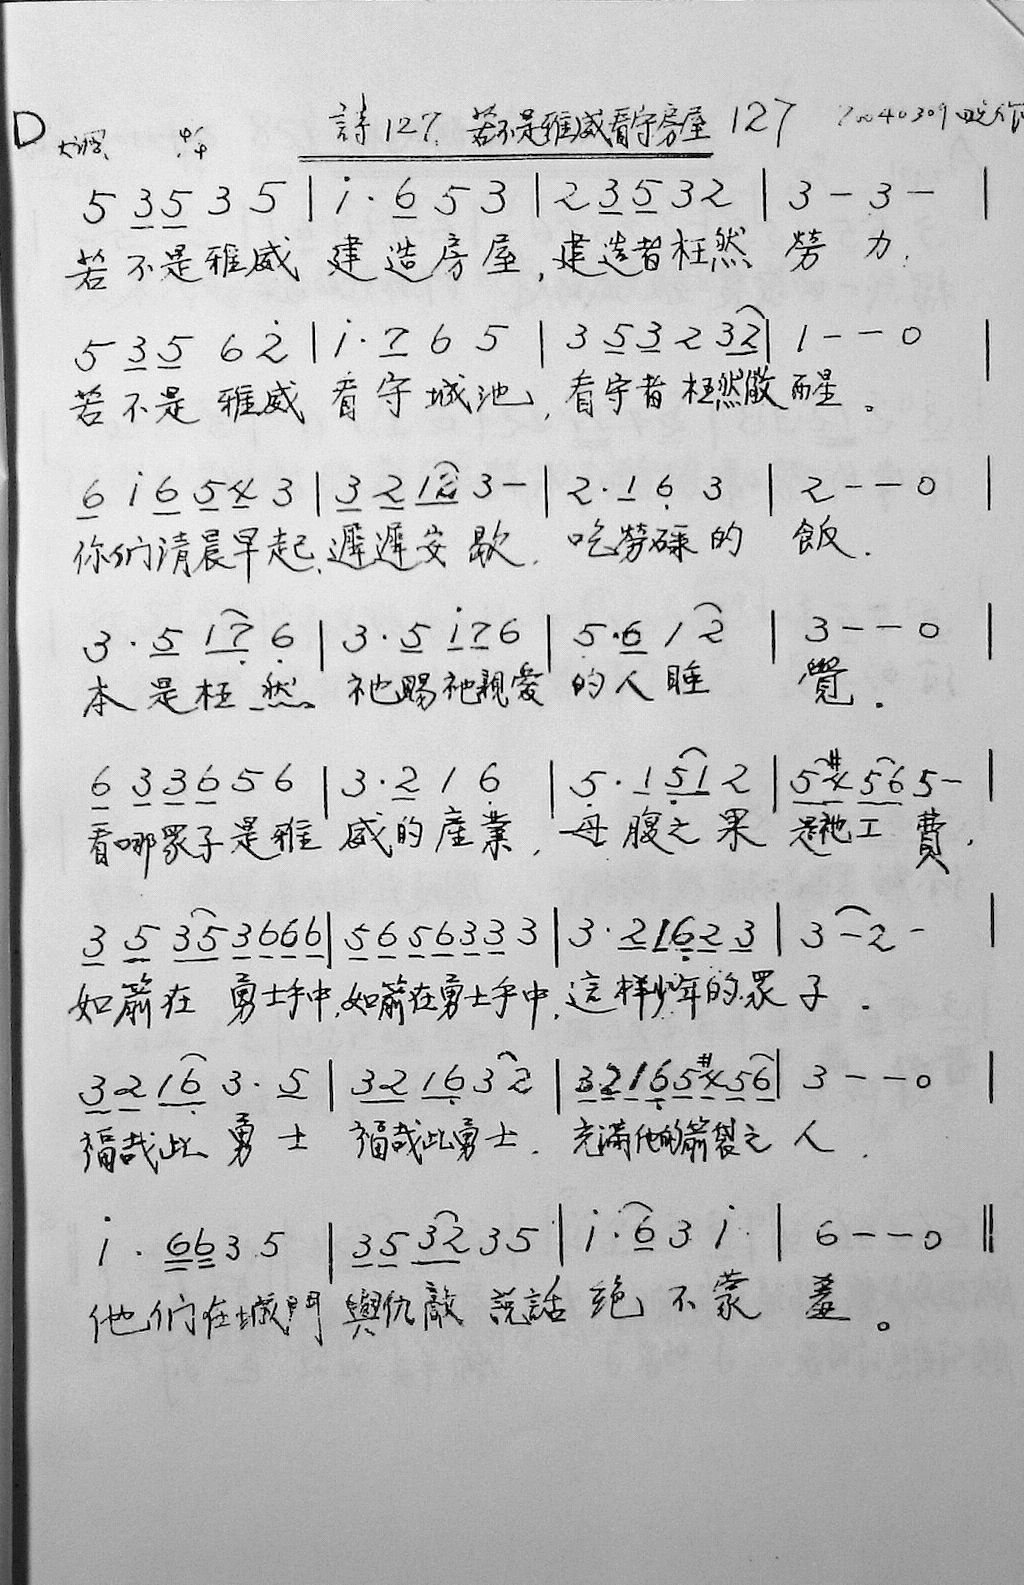 D 大調 詩127. 若不是雅威看守房屋 127
5 3 5 3 5 | i · 6 5 3 | 2 3 5 3 2 | 3 – 3 – |
若不是雅威 建造房屋, 建造者枉然 勞力.
5 3 5 6 2̇ | i · 7 6 5 | 3 5 3 2 3 2 | 1 – – 0 |
若不是雅威 看守城池, 看守者枉然儆醒。
6 i 6 5 4 3 | 3 2 1 2 3 – | 2 · 1 6̣ 3 | 2 – – 0 |
你们清晨早起, 遲遲安歇. 吃勞碌的 飯.
3 · 5 1 7̣ 6̣ | 3 · 5 i 7 6 | 5̣ · 6̣ 1 2 | 3 – – 0 |
本是枉然. 祂賜祂親愛 的人睡 覺.
6 3 3 6 5 6 | 3 · 2 1 6̣ | 5̣ · 1 5̣ 1 2 | 5 #4 5 6 5 – |
看哪眾子是雅 威的產業, 母腹之果 是祂工費,
3 5 3 5 3 6 6 6 | 5 6 5 6 3 3 3 | 3 · 2 1 6̣ 2 3 | 3 – 2 – |
如箭在 勇士手中, 如箭在勇士手中, 這样少年的眾子.
3 2 1 6̣ 3 · 5 | 3 2 1 6̣ 3 2 | 3 2 1 6̣ 5 #4 5 6 | 3 – – 0 |
福哉此 勇士 福哉此勇士. 充滿他的箭袋之 人.
i · 6 6 3 5 | 3 5 3 2 3 5 | i · 6 3 i · | 6 – – 0 ‖
他们在城門 與仇敵 説話 绝不蒙 羞。